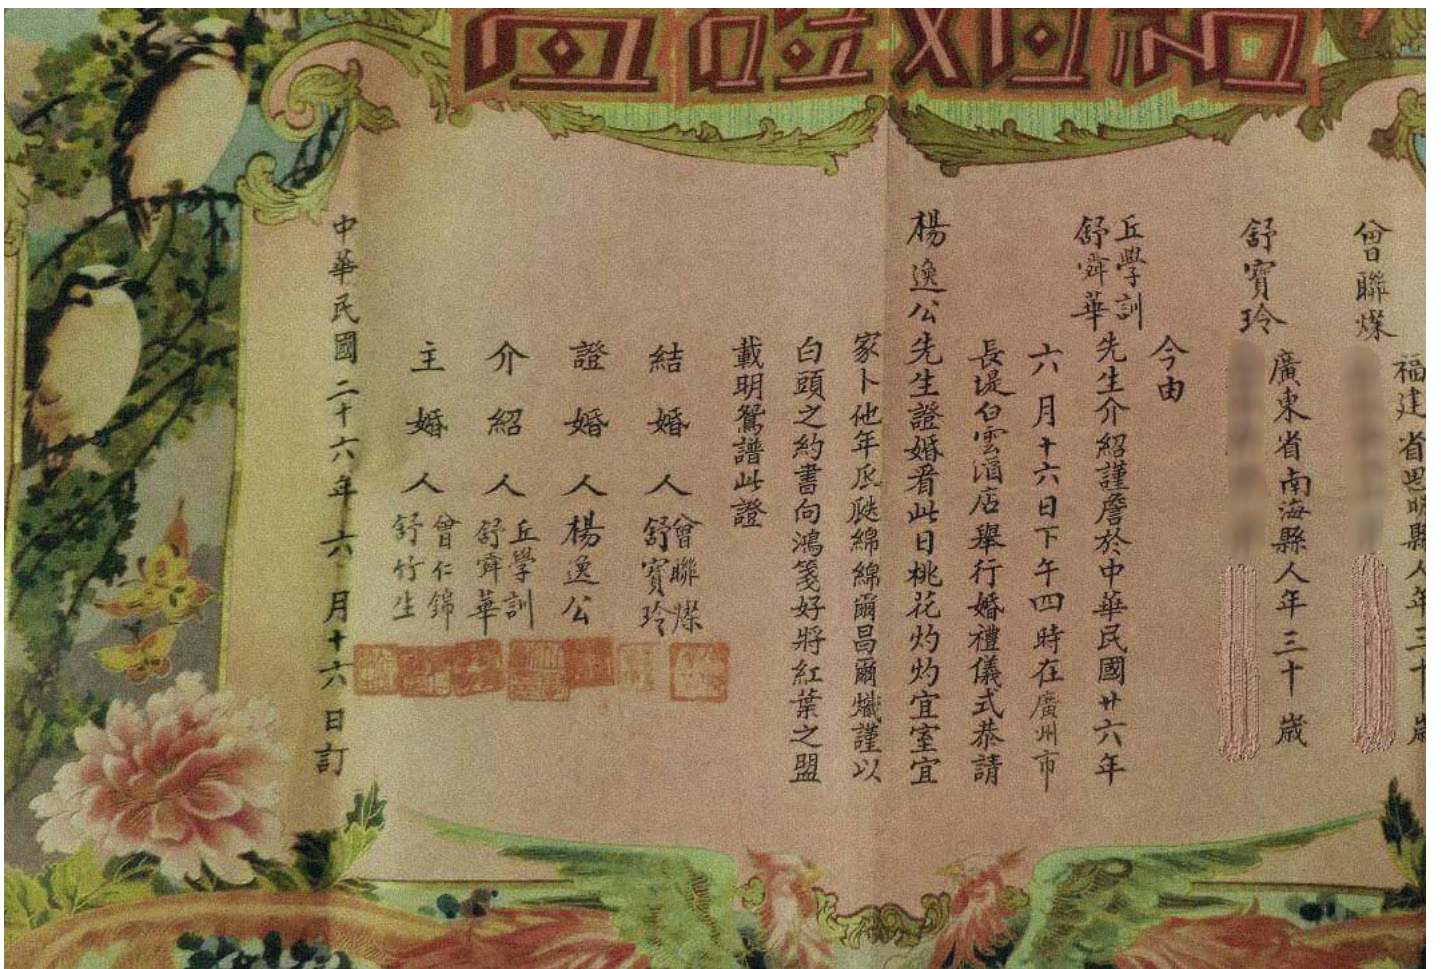 結婚證書
曾聯燦
福建省思明縣人年三十歲
舒寶玲
廣東省南海縣人年三十歲
今由
丘學訓
舒舜華
先生介紹謹詹於中華民國廿六年
六月十六日下午四時在廣州市
長堤白雲酒店舉行婚禮儀式恭請
楊逸公先生證婚看此日桃花灼灼宜室宜
家卜他年瓜瓞綿綿爾昌爾熾謹以
白頭之約書向鴻箋好將紅葉之盟
載明鴛譜此證
結婚人
曾聯燦
舒寶玲
證婚人楊逸公
介紹人
丘學訓
舒舜華
主婚人
曾仁錦
舒竹生
中華民國二十六年六月十六日訂